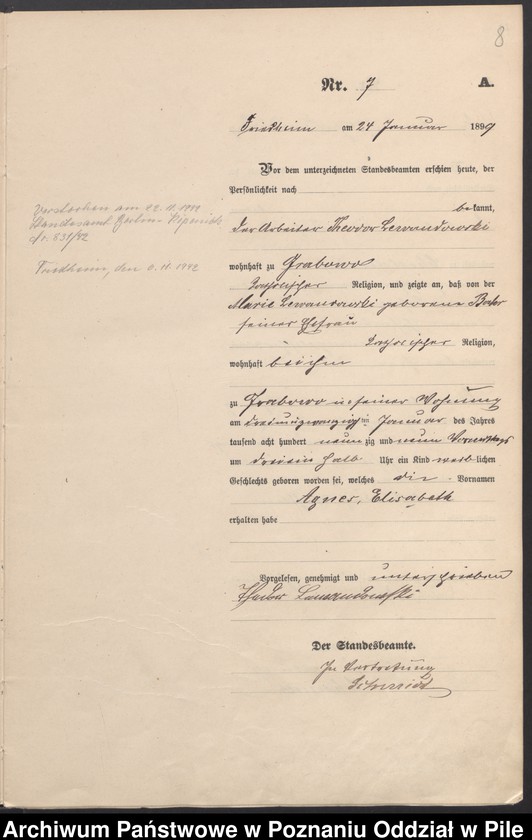 8
Nr. 7 A.
Friedheim am 24 Januar 1899
Vor dem unterzeichneten Standesbeamten erschien heute, der
Persönlichkeit nach
bekannt,
der Arbeiter Theodor Lewandowski
wohnhaft zu Grabowo
katholischer Religion, und zeigte an, daß von der
Marie Lewandowski geborene
seiner Ehefrau
katholischer Religion,
wohnhaft bei ihm
zu Grabowo in seiner Wohnung
am dreiundzwanzigsten Januar des Jahres
tausend acht hundert neunzig und neun Vormittags
um drei ein halb Uhr ein Kind weiblichen
Geschlechts geboren worden sei, welches die Vornamen
Agnes, Elisabeth
erhalten habe
Vorgelesen, genehmigt und unterschrieben
Theodor Lewandowski
Der Standesbeamte.
In Vertretung
Schmidt
Verstorben am 11. 1942
Standesamt Berlin Köpenick
Friedheim, den 11. 1942
Archiwum Państwowe w Poznaniu Oddział w Pile